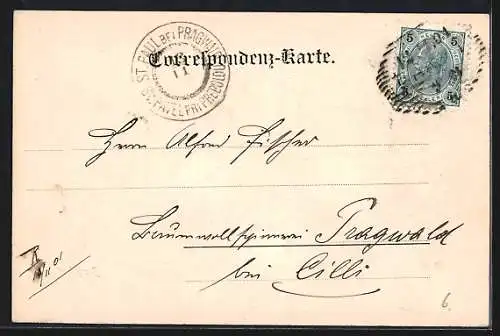 ST. PAUL BEI PRAGWALD
11
ST. PAVEL PRI PREBOLDU
Correspondenz-Karte.
5 5
Herrn Alfred Fischer
Baumwollspinnerei Pragwald
bei Cilli
6.